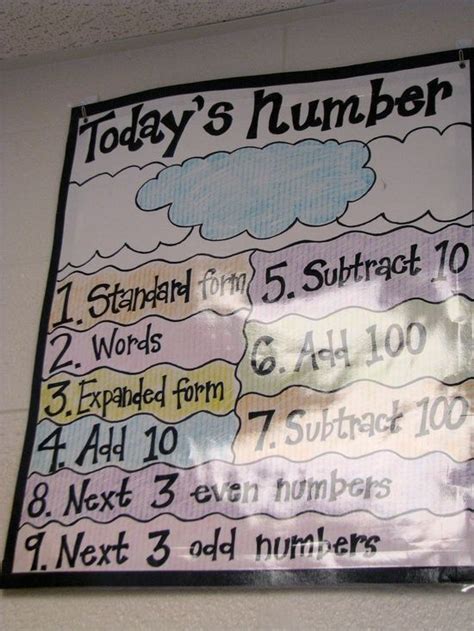 Today's Number
1. Standard form
2. Words
3. Expanded form
4. Add 10
5. Subtract 10
6. Add 100
7. Subtract 100
8. Next 3 even numbers
9. Next 3 odd numbers